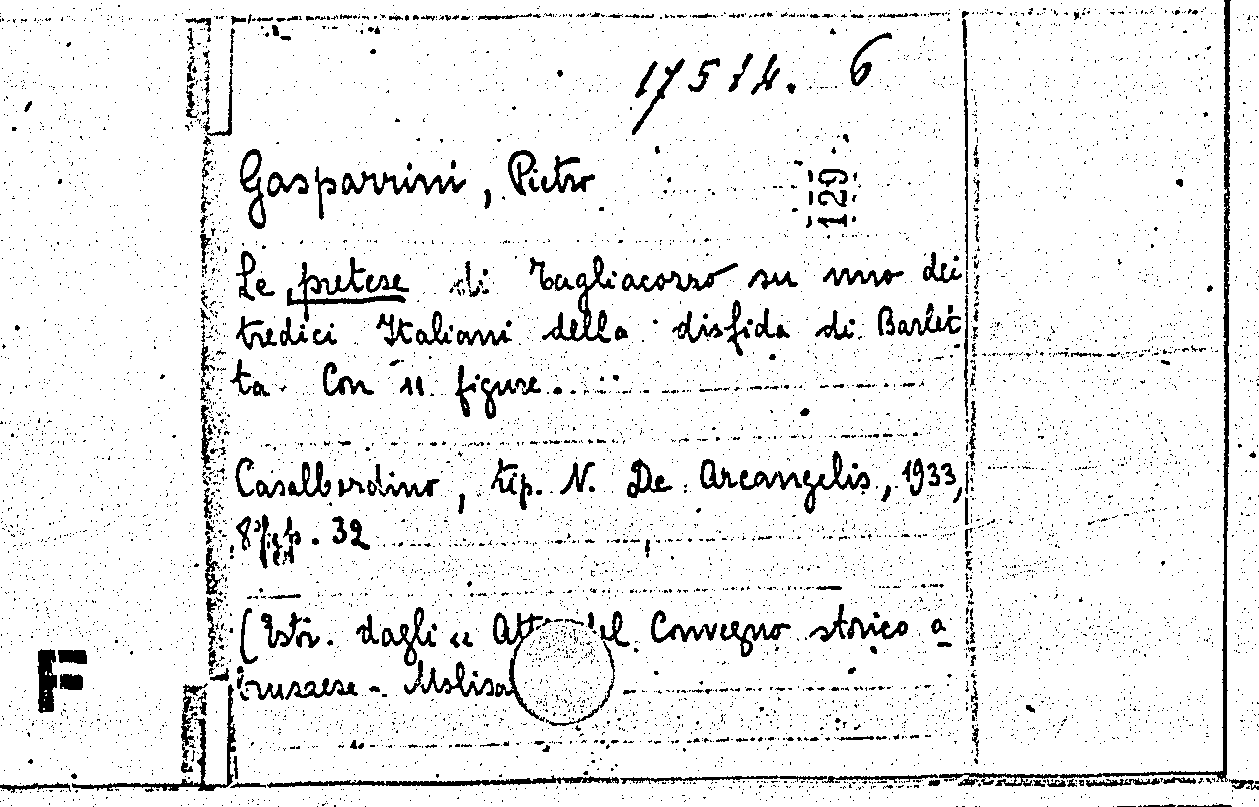 17514. 6
129
Gasparrini, Pietro
Le pretese di Tagliacozzo su uno dei
tredici Italiani della disfida di Barlet
ta. Con 11 figure.
Casalbordino, tip. N. De Arcangelis, 1933,
8° fig. p. 32
(Estr. dagli « Atti del Convegno storico a
bruzzese - Molisa
F